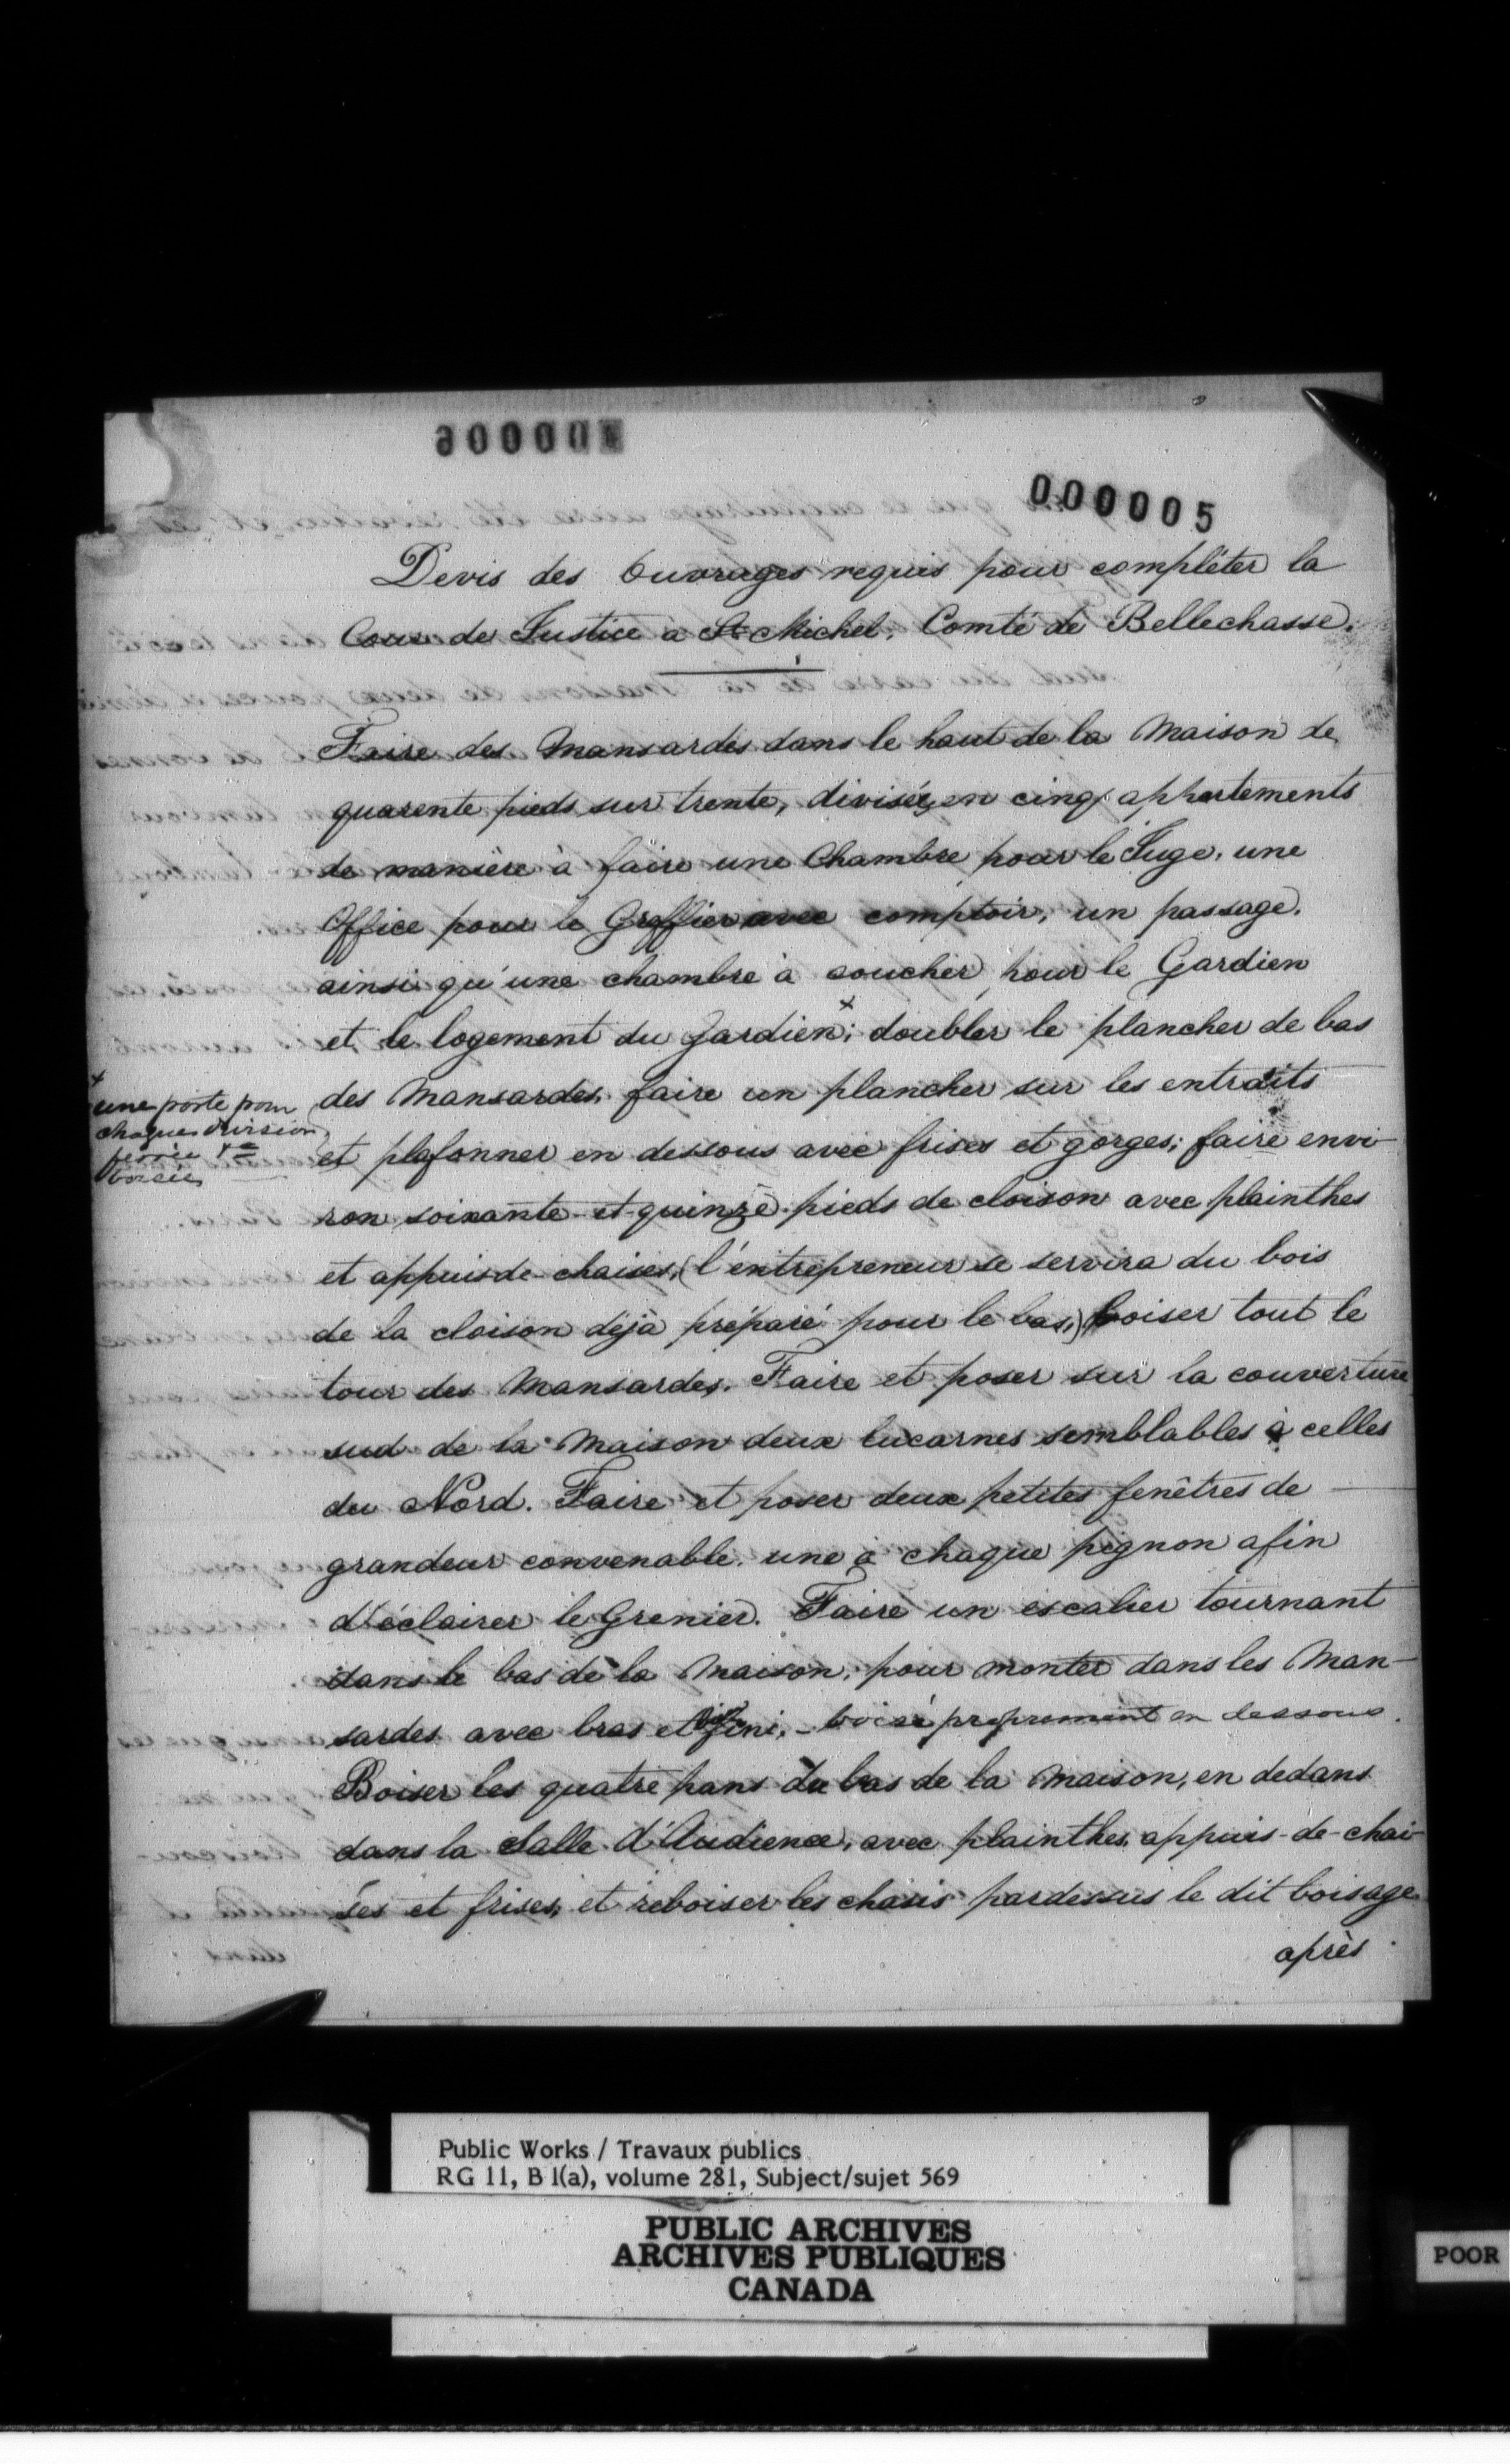 000005
Devis des Ouvrages requis pour complèter la
Cour de Justice a St Michel, Comté de Bellechasse.
Faire des Mansardes dans le haut de la Maison de
quarente pieds sur trente, divisées en cinq appartements
de manière à faire une Chambre pour le Juge, une
Office pour le Greffier avec comptoir, un passage,
ainsi qu'une chambre à coucher pour le Gardien
et le logement du Gardien x; doubler le plancher de bas
des Mansardes, faire un plancher sur les entraits
x
une porte pour
chaque division,
ferrée &
boisée
et plafonner en dessous avec frises et gorges; faire envi-
ron soixante et quinze pieds de cloison avec plainthes
et appuis de chaises, (l'entrepreneur se servira du bois
de la cloison déjà préparé pour le bas,) boiser tout le
tour des Mansardes. Faire et poser sur la couverture
sud de la Maison deux lucarnes semblables à celles
du Nord. Faire et poser deux petites fenêtres de
grandeur convenable, une à chaque pignon afin
d'éclairer le Grenier. Faire un escalier tournant
dans le bas de la Maison, pour monter dans les Man-
sardes avec bras et fini, - boisé proprement en dessous.
Boiser les quatre pans du bas de la Maison, en dedans
dans la Salle d'Audience, avec plainthes, appuis-de-chai-
ses et frises, et reboiser les chasis pardessus le dit boisage
après
Public Works / Travaux publics
RG 11, B 1(a), volume 281, Subject/sujet 569
PUBLIC ARCHIVES
ARCHIVES PUBLIQUES
CANADA
POOR